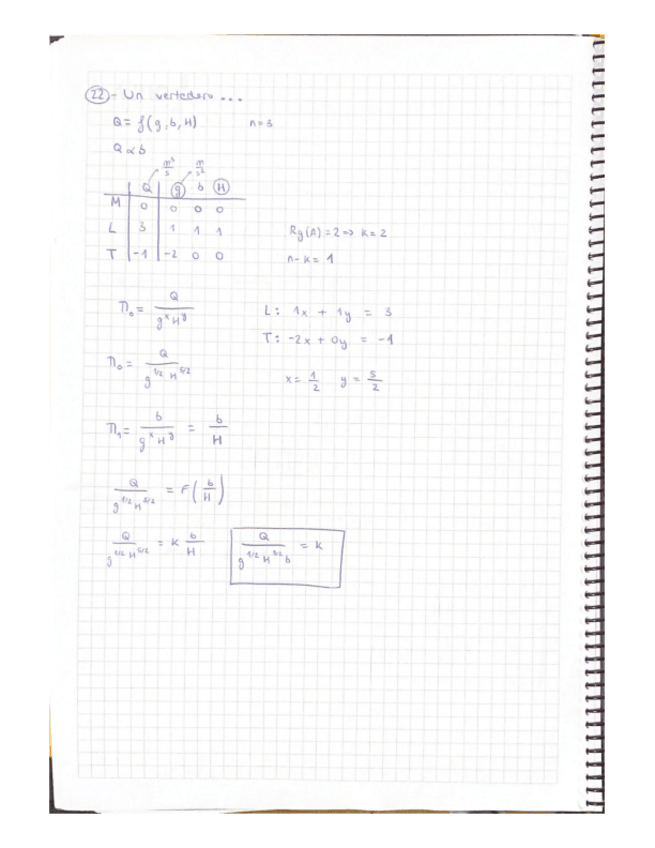 22- Un vertedero ...
Q = f(g, b, H) n=3
Q ∝ b
m³/s m/s²
Q g b H
M 0 0 0 0
L 3 1 1 1
T -1 -2 0 0
Rg(A) = 2 => k = 2
n - k = 1
Π₀ = Q / g^x H^y
L: 1x + 1y = 3
T: -2x + 0y = -1
Π₀ = Q / g^1/2 H^5/2
x = 1/2 y = 5/2
Π₁ = b / g^x H^y = b / H
Q / g^1/2 H^5/2 = F(b/H)
Q / g^1/2 H^5/2 = K b/H
Q / g^1/2 H^3/2 b = K